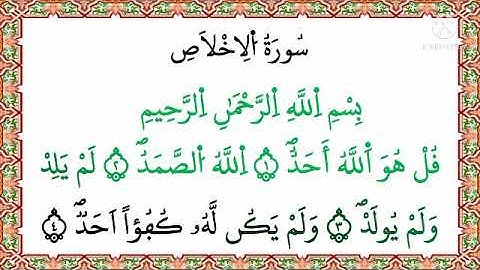 سُورَةُ ٱلِاخْلَاصِ
بِسْمِ ٱللَّهِ ٱلرَّحْمَٰنِ ٱلرَّحِيمِ
قُلْ هُوَ ٱللَّهُ أَحَدٌ ۝١ ٱللَّهُ ٱلصَّمَدُ ۝٢ لَمْ يَلِدْ
وَلَمْ يُولَدْ ۝٣ وَلَمْ يَكُن لَّهُۥ كُفُؤاً اَحَدٌ ۝٤